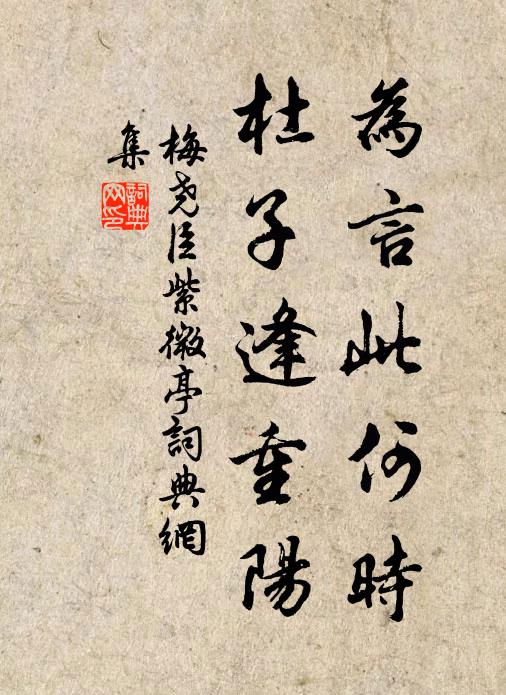 為言此何時
杜子逢重陽
梅堯臣紫微亭詞典網
集
詞典
网印